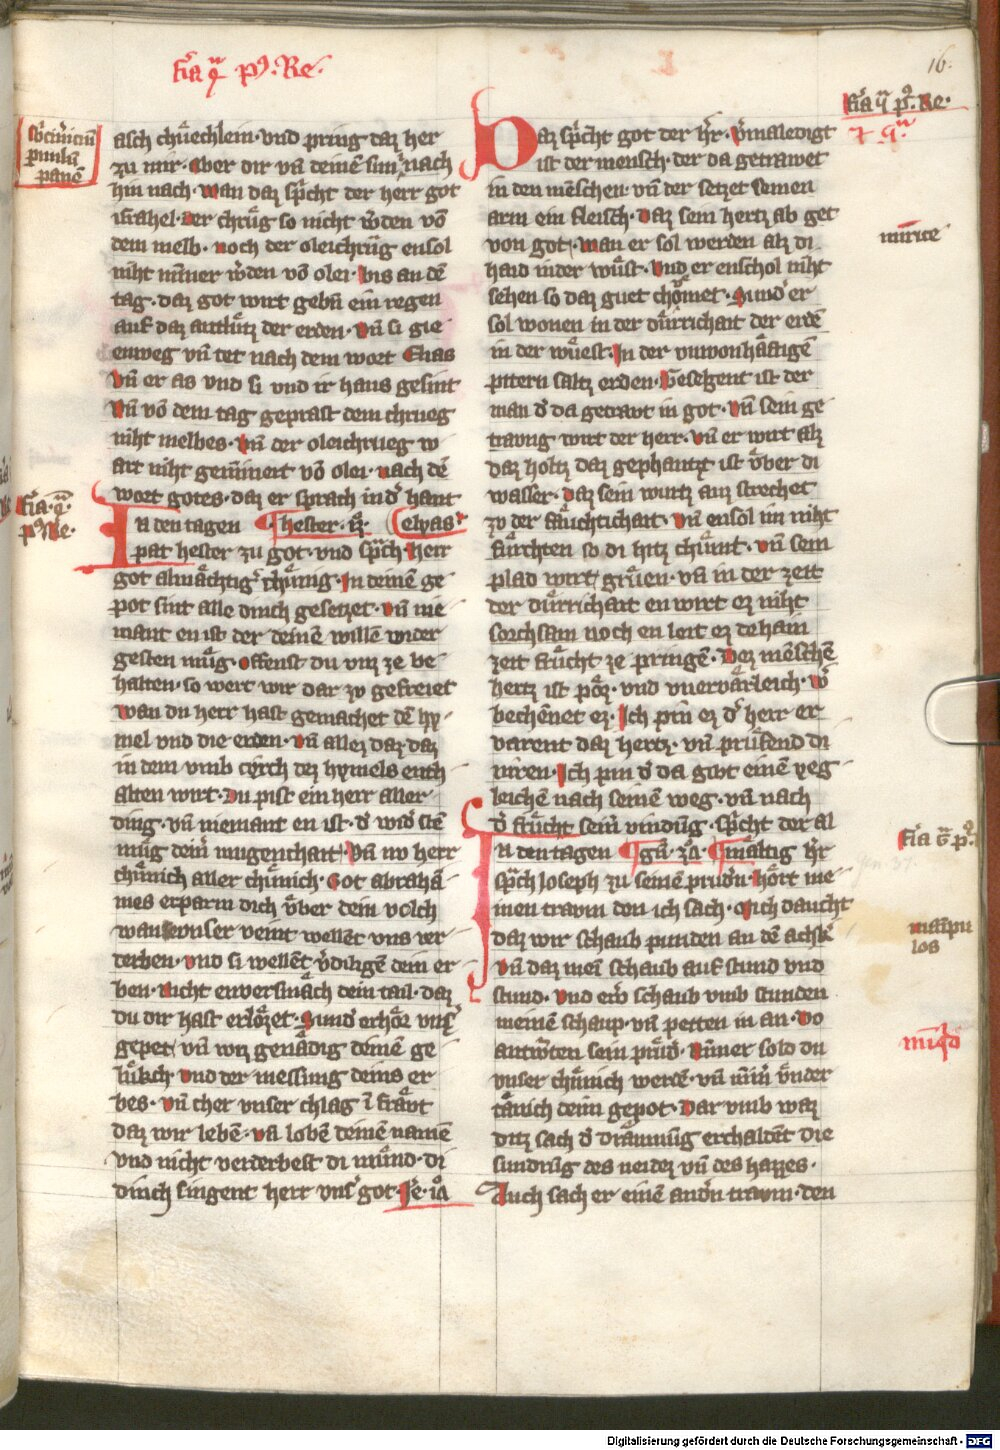 fia q̄ p9. Re.
16.
asch chuͤechlein · vnd pring daz her
zu mir · Aber dir vn̄ deinē sun · nach
hin nach · wan daz sp̄cht der herr got
israhel · Der chruͤg so nicht w̄den vō
dem melb · noch der oleichruͤg ensol
niht mīner w̄den vō olei · bis an dē
tag · daz got wirt gebn̄ ein regen
auf daz antluͤtz der erden · Vn̄ si gie
enweg vn̄ tet nach dem wort Elias
Vn̄ er as vnd si vnd ir haus gesint
Vn̄ vō dem tag geprast dem chrueg
niht melbes · Vn̄ der oleichrueg w
art niht gemīnert vō olei · nach dē
wort gotes · daz er sprach in d' hant
In den tagen hester · elyas ·
pat hester zu got · vnd sp̄ch Herr
got almaͤchtig' chuͤnig · In deinē ge
pot sint alle dinch gesetzet · Vn̄ nie
mant en ist der deinē willē wider
gesten muͤg · offenst du vnz ze be
halten · so wert wir dar zv gefreiet
Wan du herr hast gemachet dē hy
mel vnd die erden · Vn̄ allez daz daz
in dem vmb cyrch dez hymels enth
alten wirt · Du pist ein herr aller
ding · vn̄ niemant en ist · d' wid' stē
muͤg deinr̄ mugenchait · Vn̄ nv herr
chuͤnich aller chuͤnich · Got abrahā
mes erparm dich uͤber dein volch
wan vnser veint wellent vns ver
terben · vnd si wellēt v̄diligē dein er
ben · Nicht enversmaͤch dein tail · daz
du dir hast erloͤzet · Sund' erhoͤr vns'
gepet vn̄ wiz genaͤdig deinē ge
luͤkch vnd der messung deins er
bes · Vn̄ cher vnser chlag ī fraͤut
daz wir lebē · vn̄ lobē deinē namē
vnd nicht verderbest di muͤnd · di
dinch singent herr vns' got ·
Daz sp̄cht got der h'r · V̄maledigt
ist der mensch · der da getrawet
in den mēschen · vn̄ der setzet seinen
arm ein fleisch · Daz sein hertz ab get
von got · Wan er sol werden alz di
haid in der wuͤst · Vnd er enschol niht
sehen so daz guet choͤmet · Sund' er
sol wonen in der duͤrrichait der erdē
in der wuͤest · In der vnwonhaͤftigē
pitern saltz erden · Gesegent ist der
man d' da getrawt in got · Vn̄ sein ge
traung wirt der herr · Vn̄ er wirt alz
daz holtz daz gephantzt ist uͤber di
wasser · Daz sein wurtz auz strechet
zv der faͤuchtichait · Vn̄ ensol im niht
fuͤrchten so di hitz chuͤmt · Vn̄ sein
plad wirt gruͤen · vn̄ in der zeit
der duͤrrichait en wirt ez niht
sorchsam noch en leit ez dehain
zeit fruͤcht ze pringē · Dez mēschē
hertz ist poͤz · vnd vnervaͤrleich · w'
bechēnet ez · Ich pin ez d' herr er
varent daz hertz · vn̄ pruͤfend di
niren · Ich pin d' da gibt einē yeg
leichē nach seinē weg · vn̄ nach
d' fruͤcht seinr̄ vindūg · sp̄cht der al
In den tagen maͤchtig h'r
sp̄ch Joseph zu seinē pruͤd'n · Hoͤrt mei
nen travm den ich sach · Mich daucht
daz wir schaub punden an dē achk'
Vn̄ daz mei schaub auf stund vnd
stund · vnd ewr̄ schaub vmb stunden
meinē schaup · vn̄ petten in an · Do
antw̄ten sein pruͤd' · Nīmer sold du
vnser chuͤnich werdē · vn̄ wir̄ vnder
taͤnich deim gepot · Dar vmb waz
ditz sach d' draͤumūg erchaldēt die
sundrūg des neidez vn̄ des hazzes ·
Auch sach er einē and'n travm · den
Digitalisierung gefördert durch die Deutsche Forschungsgemeinschaft · DFG